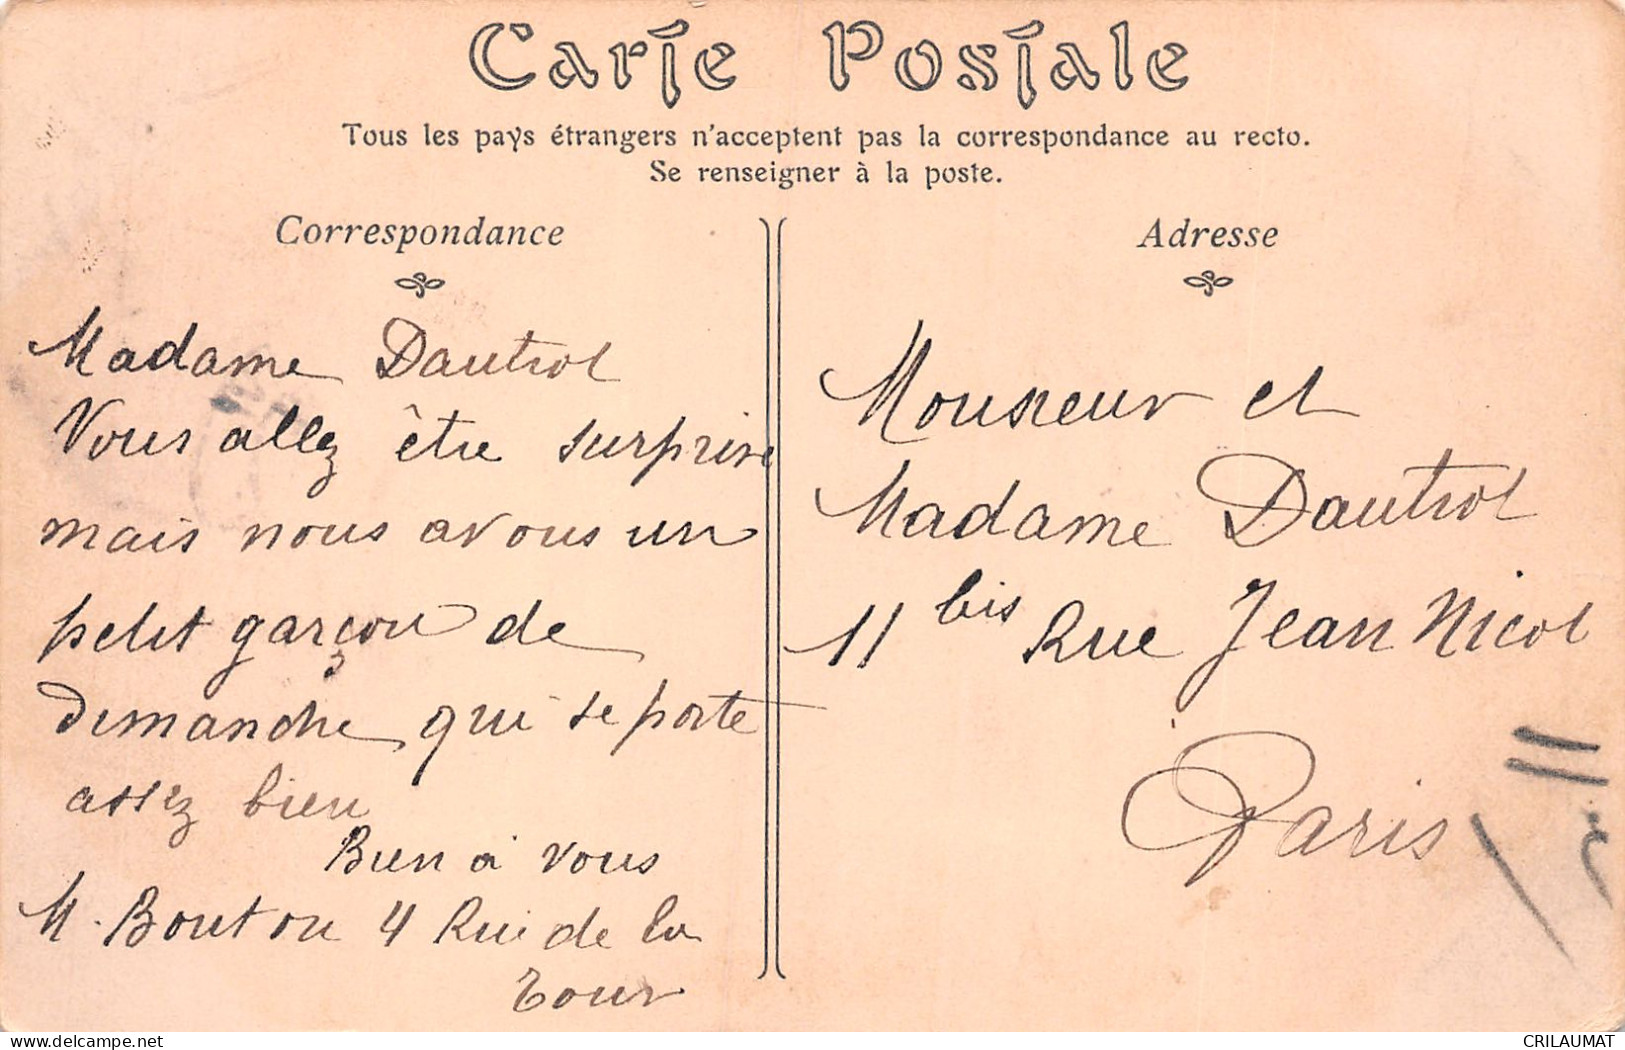 Carte Postale
Tous les pays étrangers n'acceptent pas la correspondance au recto.
Se renseigner à la poste.
Correspondance
Madame Dautrol
Vous allez être surprise
mais nous avons un
petit garçon de
dimanche qui se porte
assez bien
Bien à vous
M. Bouton 4 Rue de la
Tour
Adresse
Monsieur et
Madame Dautrol
11 bis Rue Jean Nicol
Paris
delcampe.net
CRILAUMAT